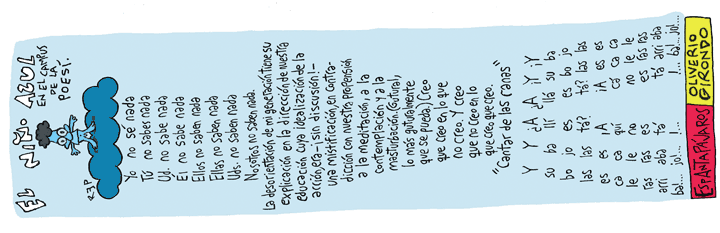 EL NIÑO AZUL
EN EL CAMPUS
DE LA
POESÍ.
REP
Yo no se nada
Tú no sabes nada
Ud. no sabe nada
El no sabe nada
Ellos no saben nada
Ellas no saben nada
Uds. no saben nada
Nosotros no saben nada.
La desorientación de mi generación tiene su
explicación en la dirección de nuestra
educación cuya idealización de la
acción, era—¡sin discusión!—
una mistificación, en contra-
dicción con nuestra propensión
a la meditación, a la
contemplación y a la
masturbación. (Gutural,
lo más guturalmente
que se pueda.) Creo
que creo en lo que
no creo. Y creo
que no creo en lo
que creo que creo.
"Cantar de las ranas"
Y Y ¿A ¿A ¡Y ¡Y
su ba llí llá su ba
bo jo es es bo jo
las las tá? tá? las las
es es ¡A ¡A es es
ca ca quí cá ca ca
le le no no le le
ras ras es es ras ras
arri aba tá tá arri aba
ba!... jo!... !... !... ba!... jo!...
ESPANTAPÁJAROS
OLIVERIO
GIRONDO